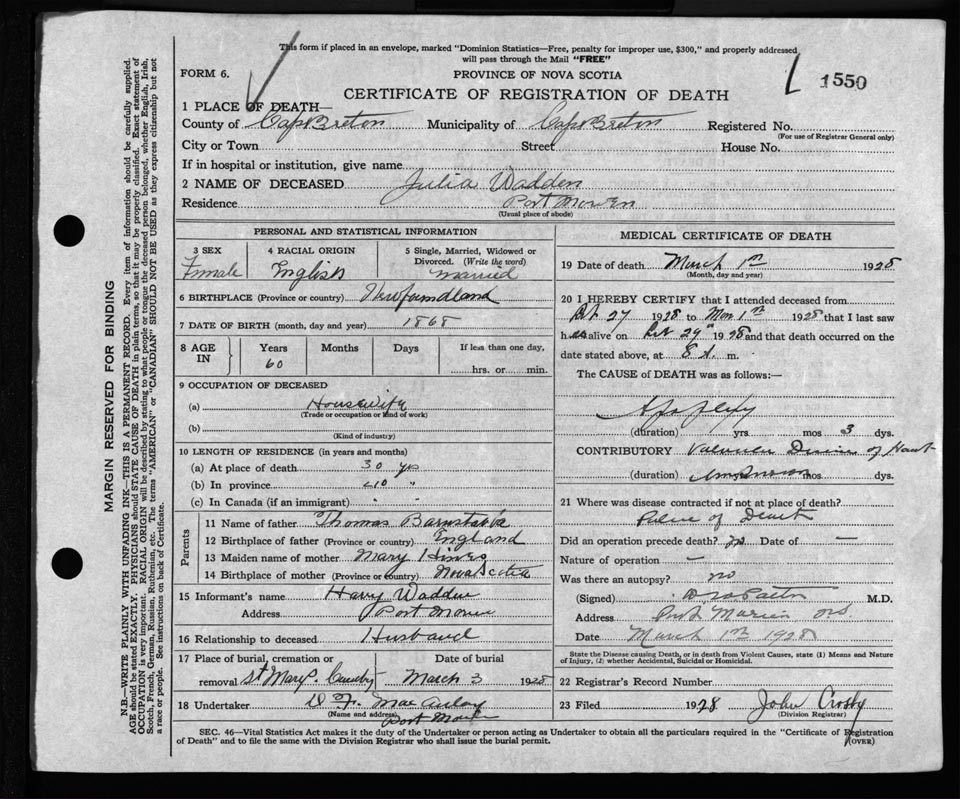 This form if placed in an envelope, marked "Dominion Statistics—Free, penalty for improper use, $300," and properly addressed
will pass through the Mail "FREE"
FORM 6.
PROVINCE OF NOVA SCOTIA
1550
CERTIFICATE OF REGISTRATION OF DEATH
1 PLACE OF DEATH—
County of Cape Breton Municipality of Cape Breton Registered No.
(For use of Registrar General only)
City or Town Street House No.
If in hospital or institution, give name
2 NAME OF DECEASED Julia Wadden
Residence Port Morien
(Usual place of abode)
PERSONAL AND STATISTICAL INFORMATION
3 SEX 4 RACIAL ORIGIN 5 Single, Married, Widowed or
Divorced. (Write the word)
Female English married
6 BIRTHPLACE (Province or country) Newfoundland
7 DATE OF BIRTH (month, day and year) 1868
8 AGE IN Years Months Days If less than one day,
60 hrs. or min.
9 OCCUPATION OF DECEASED
(a) Housewife
(Trade or occupation or kind of work)
(b)
(Kind of industry)
10 LENGTH OF RESIDENCE (in years and months)
(a) At place of death 30 yrs
(b) In province 40 "
(c) In Canada (if an immigrant) " "
Parents
11 Name of father Thomas
12 Birthplace of father (Province or country) England
13 Maiden name of mother Mary Hines
14 Birthplace of mother (Province or country) Nova Scotia
15 Informant's name Harry Wadden
Address Port Morien
16 Relationship to deceased Husband
17 Place of burial, cremation or Date of burial
removal St Marys March 3 1928
18 Undertaker MacAulay
(Name and address) Port Morien
MEDICAL CERTIFICATE OF DEATH
19 Date of death March 1st 1928
(Month, day and year)
20 I HEREBY CERTIFY that I attended deceased from
Feb 27 1928 to Mar 1st 1928 that I last saw
her alive on Feb 29th 1928 and that death occurred on the
date stated above, at 8 m.
The CAUSE of DEATH was as follows:—
Apoplexy
(duration) yrs mos 3 dys.
CONTRIBUTORY Valvular Disease of Heart
(duration) Unknown mos dys.
21 Where was disease contracted if not at place of death?
Place of Death
Did an operation precede death? no Date of —
Nature of operation —
Was there an autopsy? no
(Signed) M.D.
Address Port Morien NS
Date March 1st 1928
State the Disease causing Death, or in death from Violent Causes, state (1) Means and Nature
of Injury, (2) whether Accidental, Suicidal or Homicidal.
22 Registrar's Record Number
23 Filed 1928 John Crosby
(Division Registrar)
SEC. 46—Vital Statistics Act makes it the duty of the Undertaker or person acting as Undertaker to obtain all the particulars required in the "Certificate of Registration
of Death" and to file the same with the Division Registrar who shall issue the burial permit. (OVER)
MARGIN RESERVED FOR BINDING
N.B.—WRITE PLAINLY WITH UNFADING INK—THIS IS A PERMANENT RECORD. Every item of information should be carefully supplied.
AGE should be stated EXACTLY. PHYSICIANS should STATE CAUSE OF DEATH in plain terms, so that it may be properly classified. Exact statement of
OCCUPATION is very important. RACIAL ORIGIN will be described by stating to what people or tongue the deceased person belonged, whether English, Irish,
Scotch, French, German, Russian, Ruthenian, etc. The terms "AMERICAN" or "CANADIAN" SHOULD NOT BE USED as they express citizenship but not
a race or people. See instructions on back of Certificate.